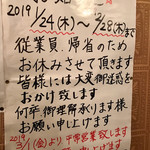 2019
1/24(木)〜2/28(木)まで
従業員、帰省のため
お休みさせて頂きます
皆様には大変御迷惑を
おかけ致します
何卒御理解承ります様
お願い申し上げます
2019
3/1(金)より平常営業致します